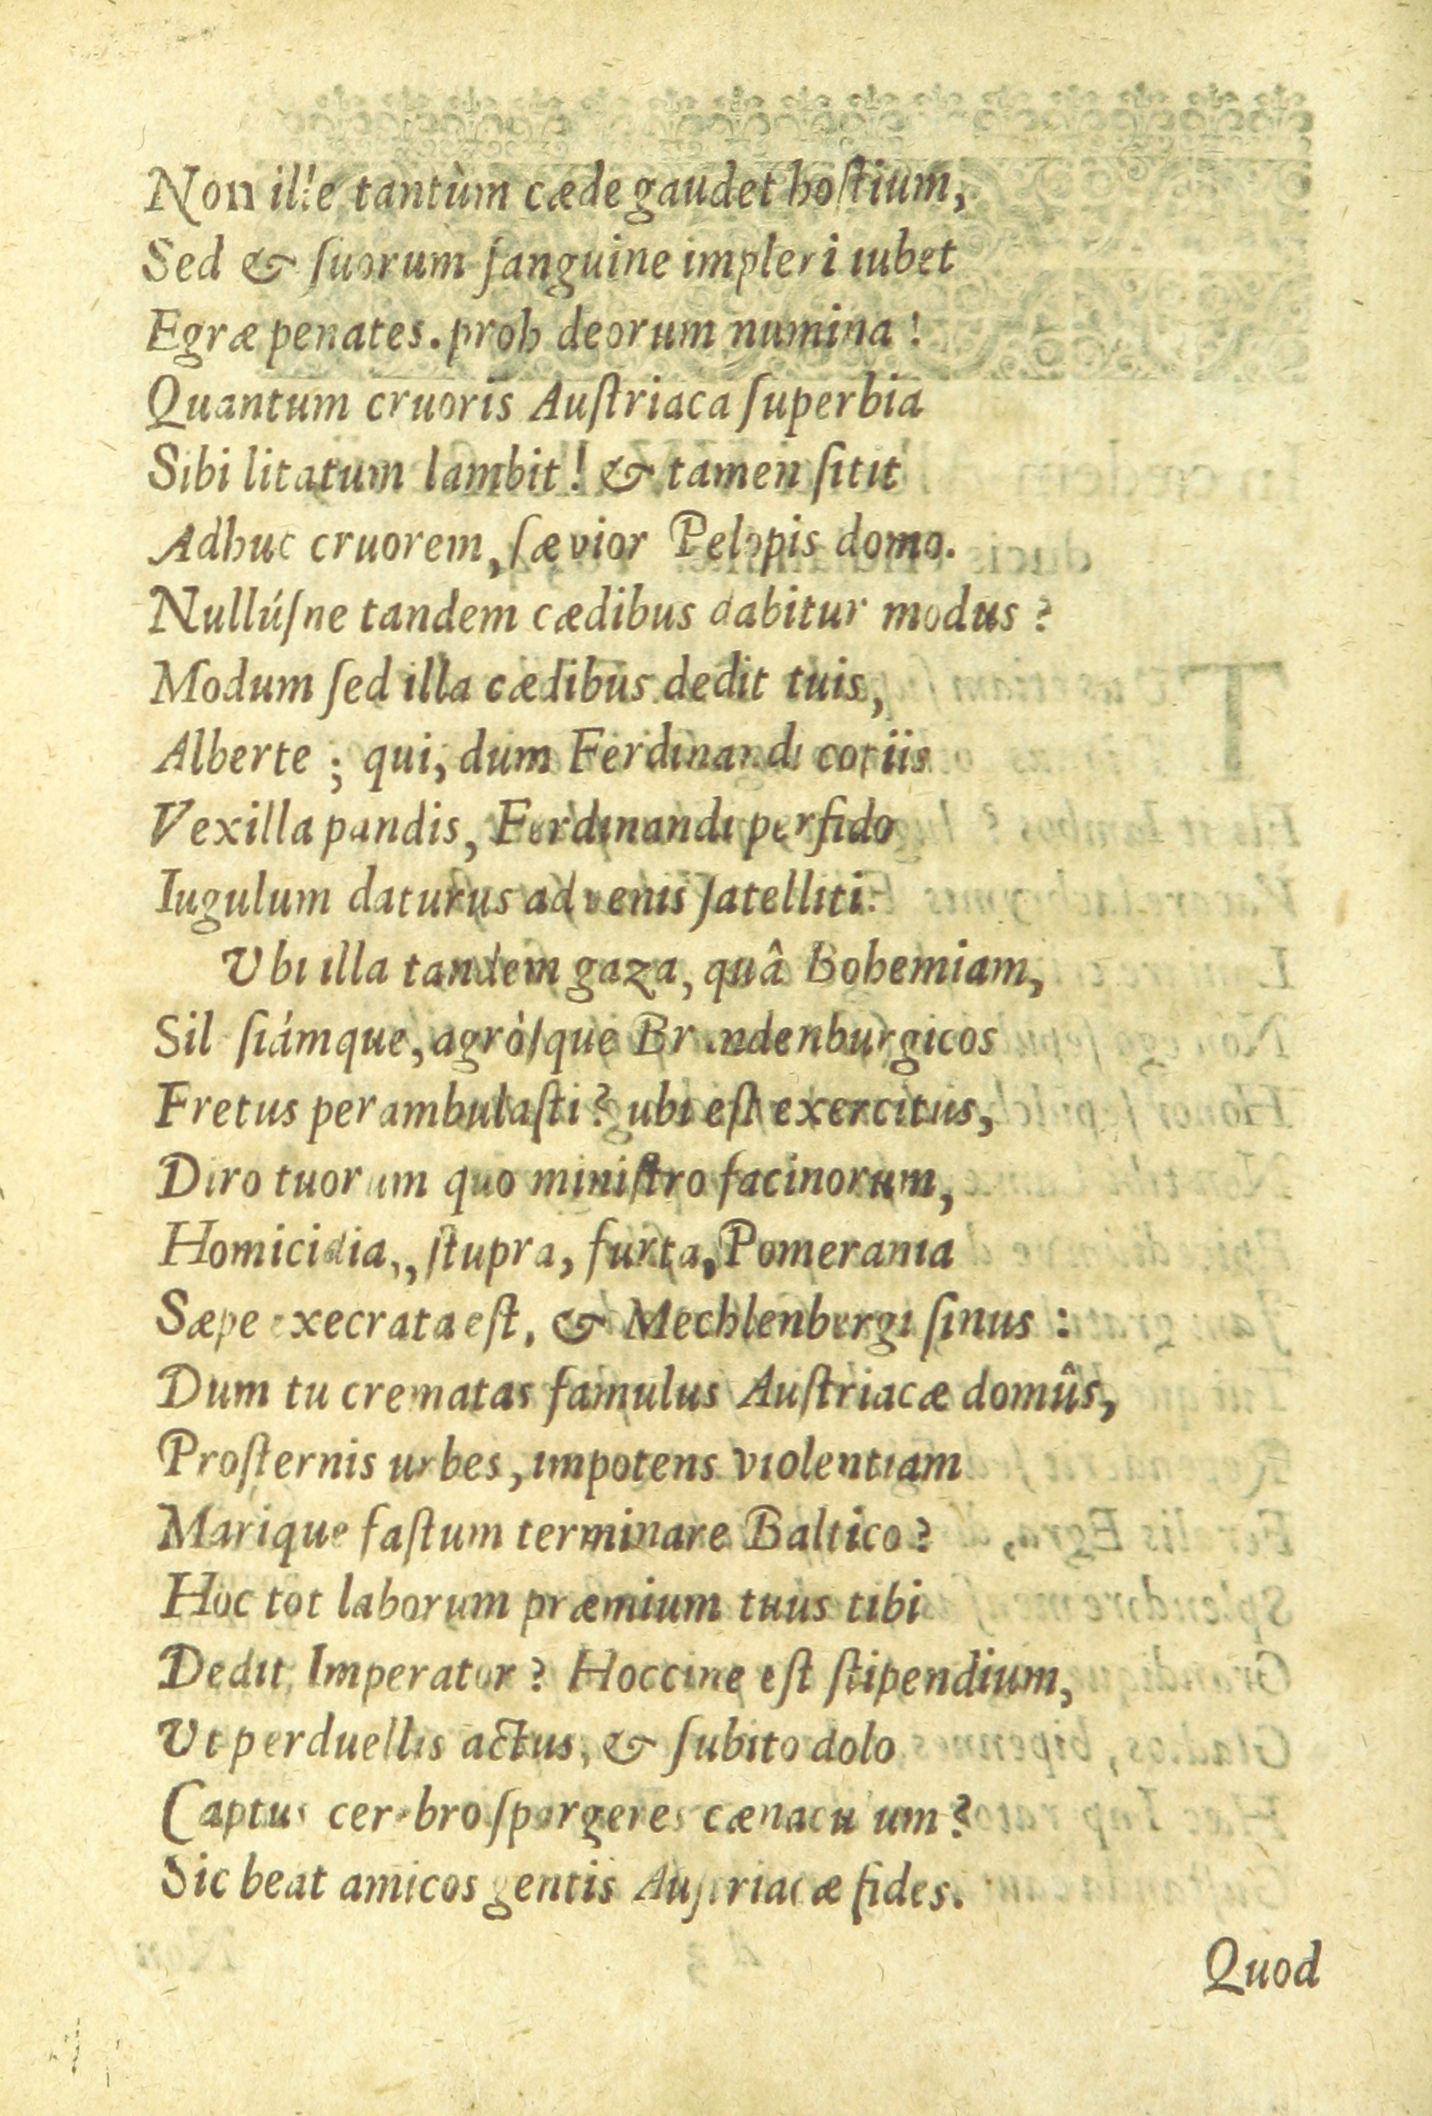 Non ille tantùm cæde gaudet hoſtium,
Sed & ſuorum ſanguine impleri iubet
Egræ penates. proh deorum numina !
Quantum cruoris Auſtriaca ſuperbia
Sibi litatum lambit ! & tamen ſitit
Adhuc cruorem, ſævior Pelopis domo.
Nullúſne tandem cædibus dabitur modus ?
Modum ſed illa cædibus dedit tuis,
Alberte ; qui, dum Ferdinandi copiis
Vexilla pandis, Ferdinandi perfido
Iugulum daturus advenis ſatelliti.
Ubi illa tandem gaza, quâ Bohemiam,
Sileſiámque, agròſque Brandenburgicos
Fretus perambulaſti ? ubi eſt exercitus,
Diro tuorum quo miniſtro facinorum,
Homicidia, ſtupra, furta, Pomerania
Sæpe execrata eſt, & Mechlenbergi ſinus :
Dum tu crematas famulus Auſtriacæ domûs,
Proſternis urbes, impotens violentiam
Marique faſtum terminare Baltico ?
Hoc tot laborum præmium tuus tibi
Dedit Imperator ? Hoccine eſt ſtipendium,
Ut perduellis actus, & ſubito dolo
Captus cerebro ſpargeres cænaculum ?
Sic beat amicos gentis Auſtriacæ fides.
Quod